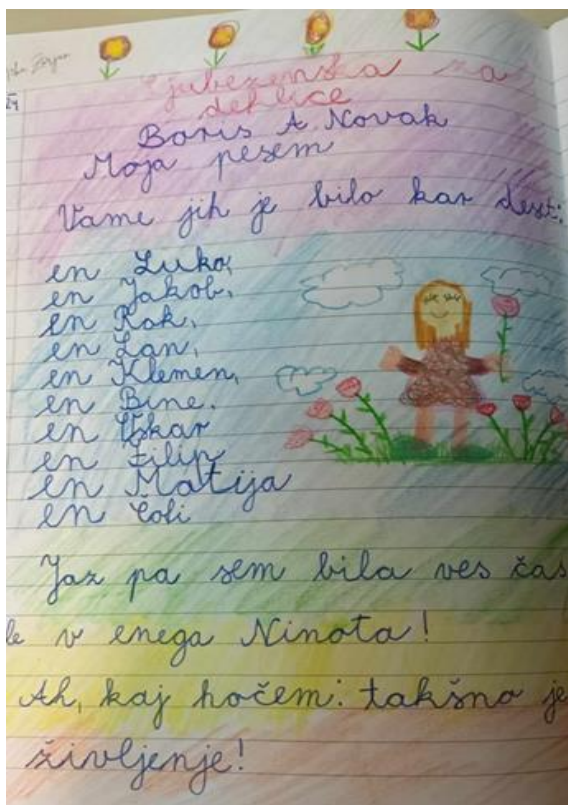 Ljubezenska za
deklice
Boris A Novak
Moja pesem
Vame jih je bilo kar deset:
en Luka,
en Jakob,
en Rok,
en Lan,
en Klemen,
en Bine.
en Oskar
en Filip
en Matija
en Čoli
Jaz pa sem bila ves čas
le v enega Ninota!
Ah, kaj hočem: takšno je
življenje!